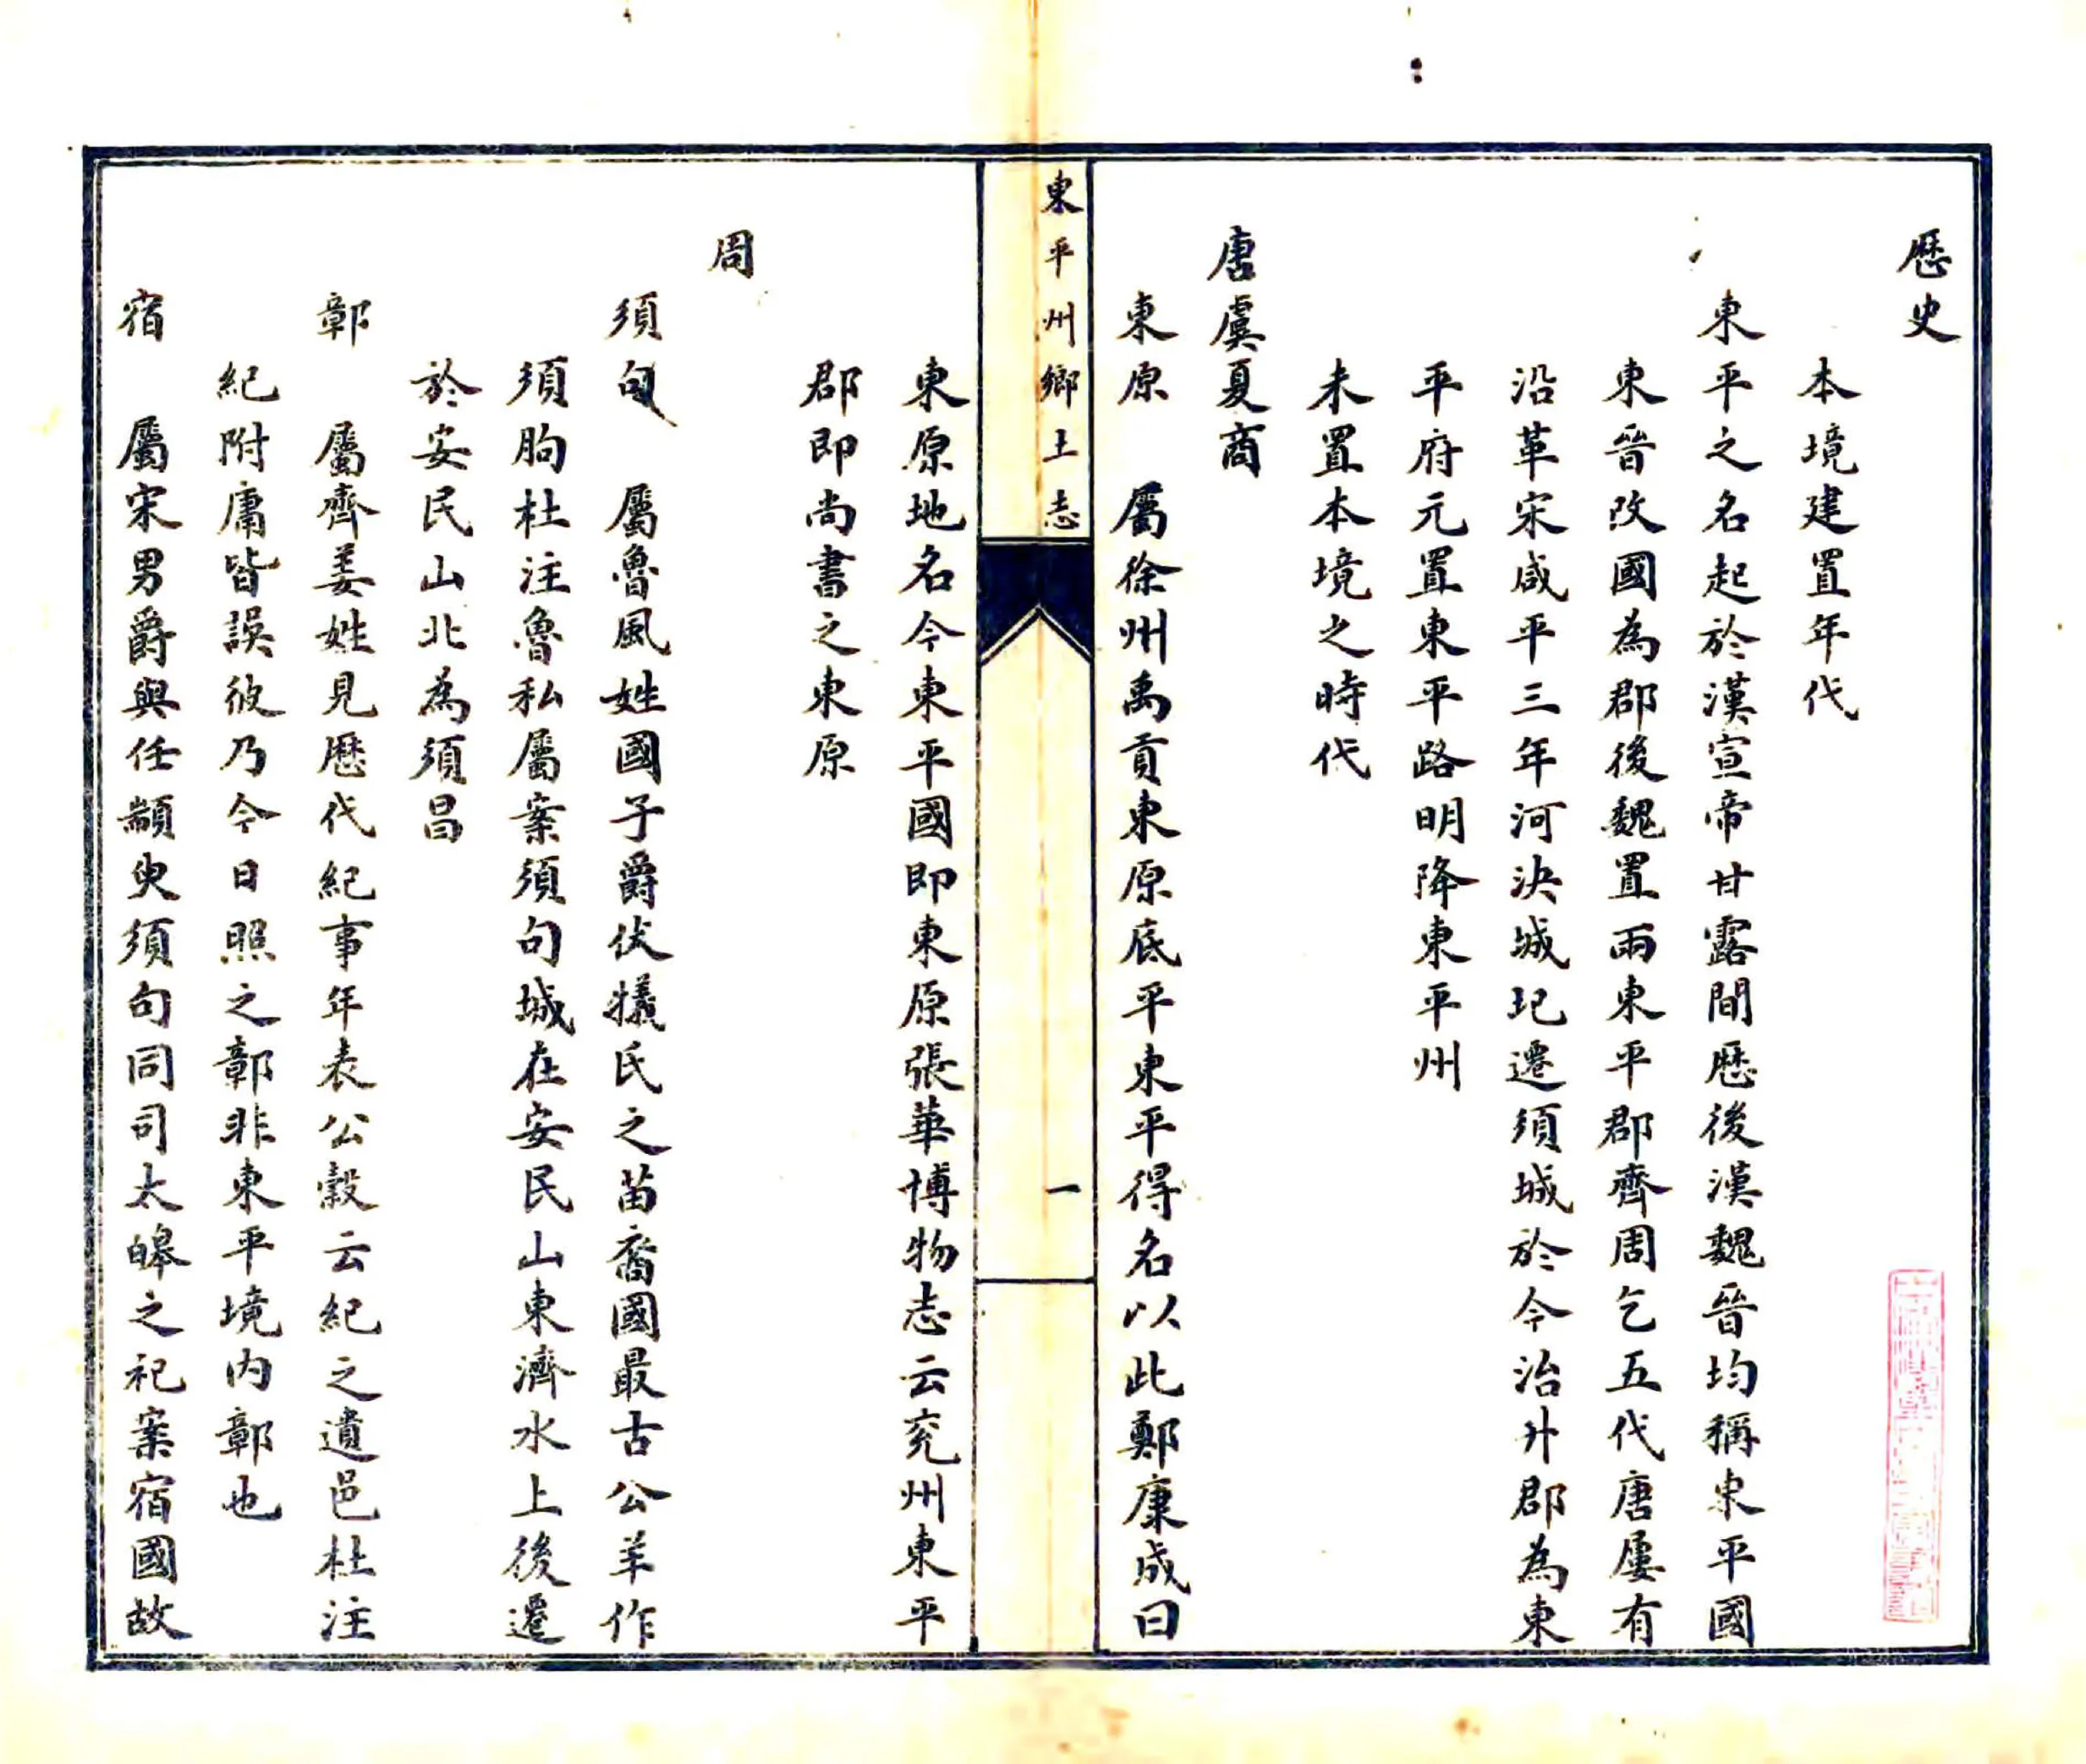 歷史
本境建置年代
東平之名起於漢宣帝甘露間歷後漢魏晉均稱東平國
東晉改國為郡後魏置兩東平郡齊周乞五代唐屢有
沿革宋咸平三年河決城圯遷須城於今治升郡為東
平府元置東平路明降東平州
未置本境之時代
唐虞夏商
東原 屬徐州禹貢東原底平東平得名以此鄭康成曰
東平州鄉土志
一
東原地名今東平國即東原張華博物志云兖州東平
郡即尚書之東原
周
須句 屬魯風姓國子爵伏犧氏之苗裔國最古公羊作
須朐杜注魯私屬案須句城在安民山東濟水上後遷
於安民山北為須昌
鄣 屬齊姜姓見歷代紀事年表公穀云紀之遺邑杜注
紀附庸皆誤彼乃今日照之鄣非東平境內鄣也
宿 屬宋男爵與任顓臾須句同司太皞之祀案宿國故